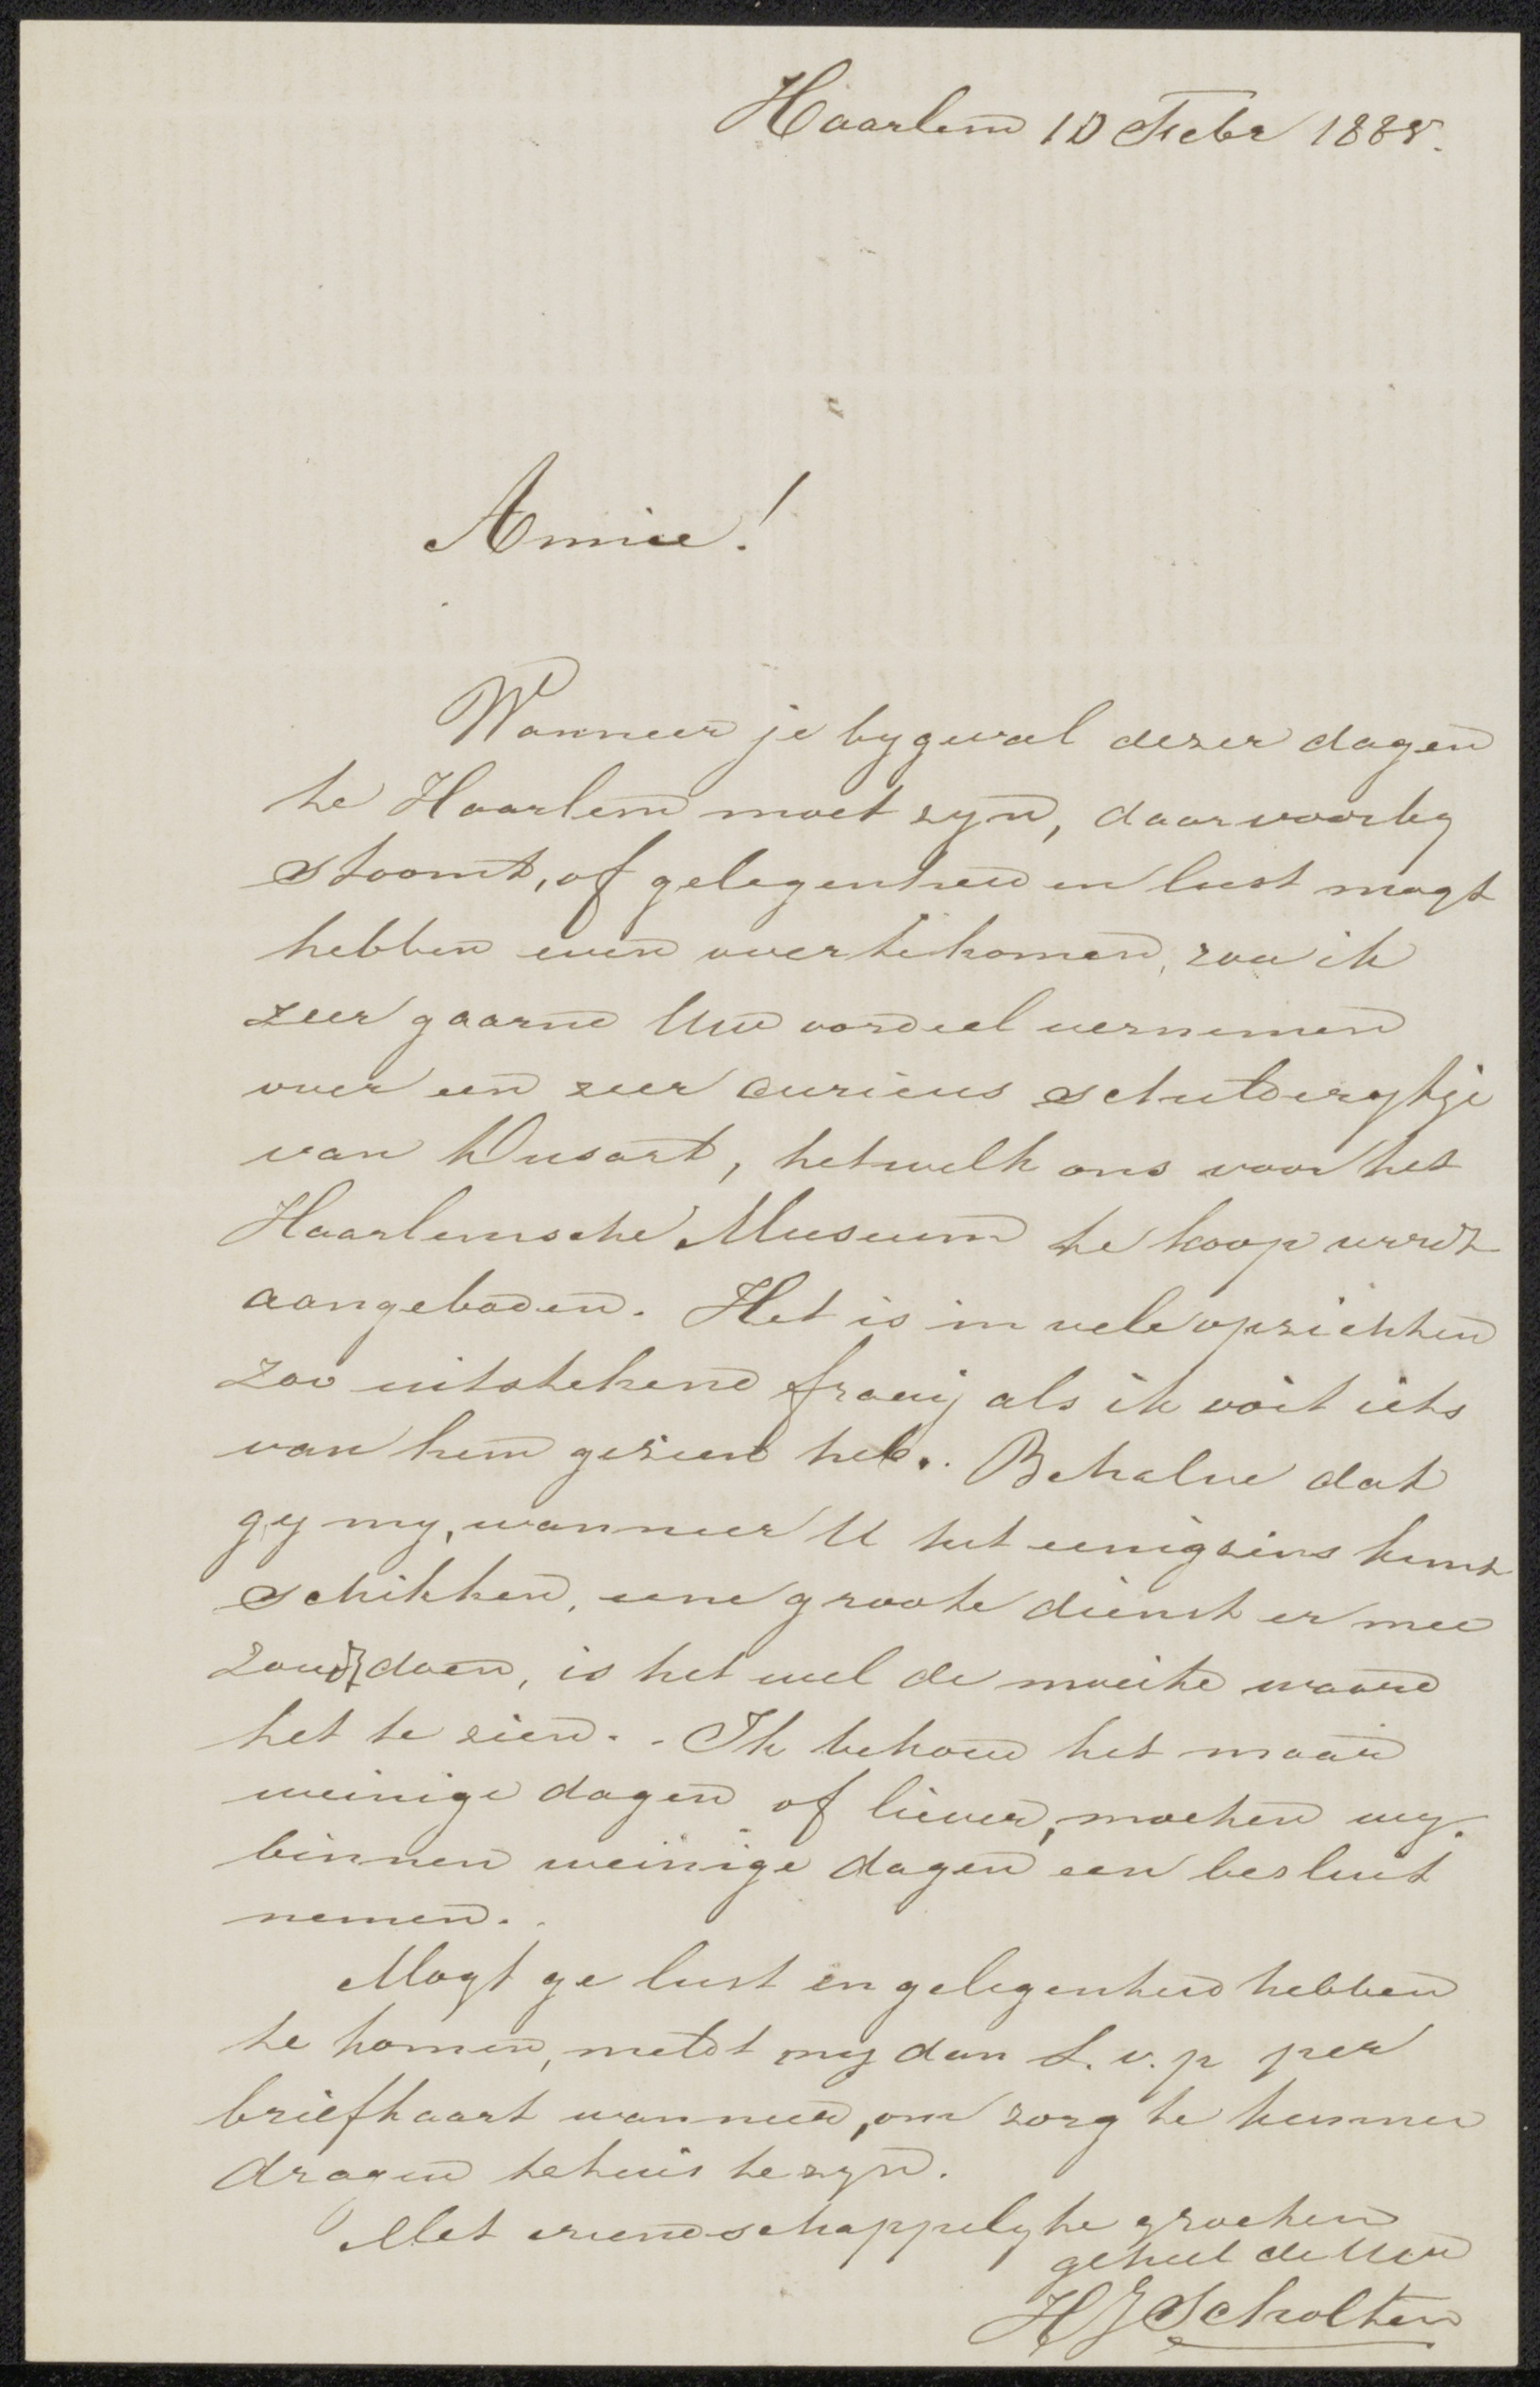 Haarlem 10 Febr 1888.
Amice!
Wanneer je bygeval dezer dagen
te Haarlem moet zyn, daar voorby
stoomt, of gelegenheid en lust mogt
hebben even over te komen, zou ik
zeer gaarne Uw oordeel vernemen
over een zeer curieus schilderytje
van Dusart, hetwelk ons voor het
Haarlemsche Museum te koop wordt
aangeboden. Het is in vele opzichten
zoo uitstekend fraaij als ik ooit iets
van hem gezien heb. Behalve dat
gy my, wanneer U het eenigzins kunt
schikken, eene groote dienst er mee
zoudt doen, is het wel de moeite waard
het te zien. - Ik behoud het maar
weinige dagen of liever, moeten wy
binnen weinige dagen een besluit
nemen.
Mogt ge lust en gelegenheid hebben
te komen, meldt my dan S.v.p per
briefkaart wanneer, om zorg te kunnen
dragen te huis te zyn.
Met vriendschappelyke groeten
geheel de Uwe
HJ Scholten